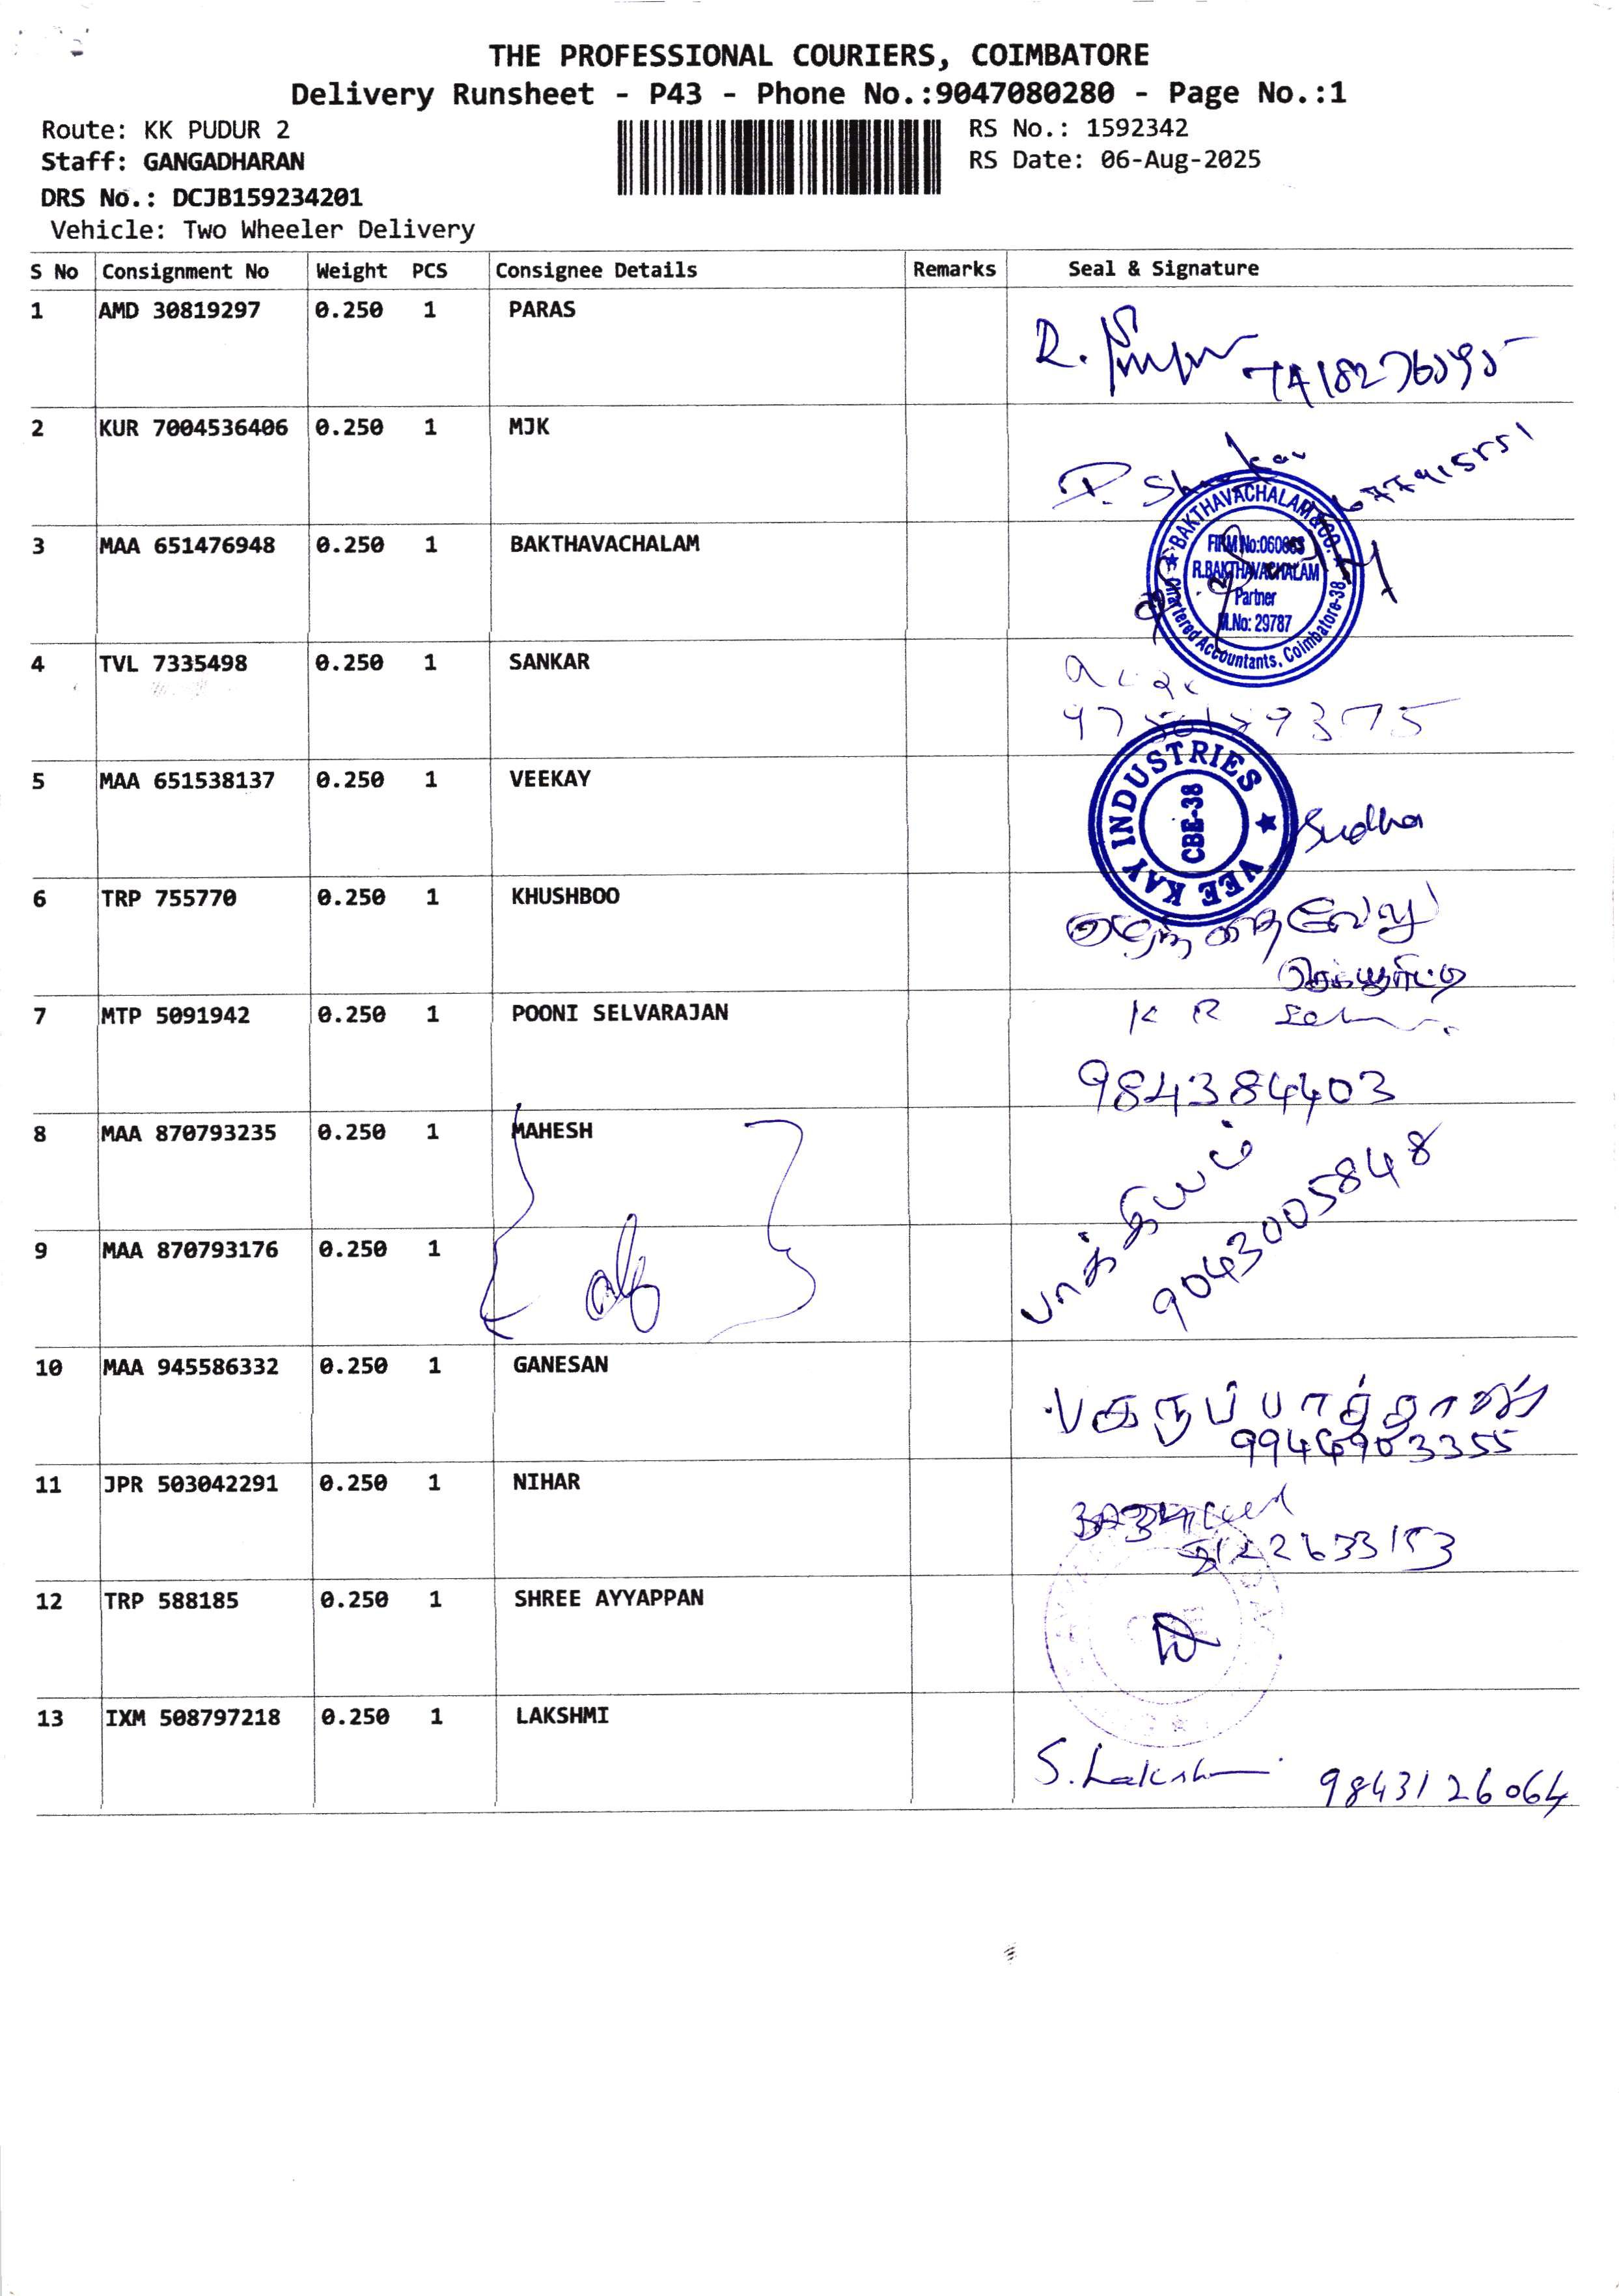 THE PROFESSIONAL COURIERS, COIMBATORE
Delivery Runsheet - P43 - Phone No.:9047080280 - Page No.:1
Route: KK PUDUR 2
RS No.: 1592342
Staff: GANGADHARAN
RS Date: 06-Aug-2025
DRS No.: DCJB159234201
Vehicle: Two Wheeler Delivery
S No Consignment No Weight PCS Consignee Details Remarks Seal & Signature
1 AMD 30819297 0.250 1 PARAS
R.
2 KUR 7004536406 0.250 1 MJK
P.
3 MAA 651476948 0.250 1 BAKTHAVACHALAM
BAKTHAVACHALAM & CO.
FIRM No:060
R.BAKTHAVACHALAM
Partner
M.No: 29787
Chartered Accountants, Coimbatore-38
4 TVL 7335498 0.250 1 SANKAR
5 MAA 651538137 0.250 1 VEEKAY
VEE KAY INDUSTRIES
CBE-38
Sudha
6 TRP 755770 0.250 1 KHUSHBOO
குழந்தைவேலு
7 MTP 5091942 0.250 1 POONI SELVARAJAN
K R
984384403
8 MAA 870793235 0.250 1 MAHESH
9 MAA 870793176 0.250 1
9043005848
10 MAA 945586332 0.250 1 GANESAN
11 JPR 503042291 0.250 1 NIHAR
12 TRP 588185 0.250 1 SHREE AYYAPPAN
13 IXM 508797218 0.250 1 LAKSHMI
S. Lakshmi 9843126064